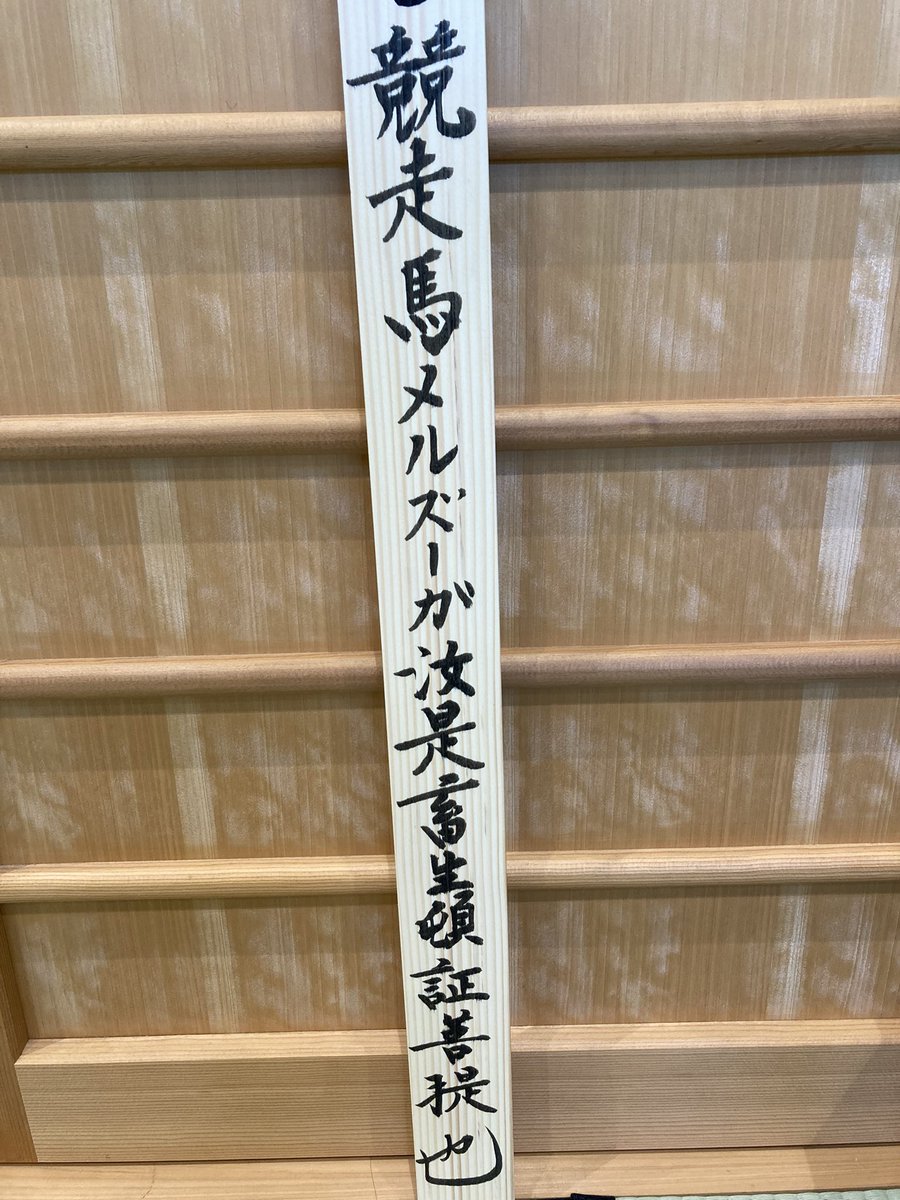 競走馬メルズーが汝是畜生頓証菩提也